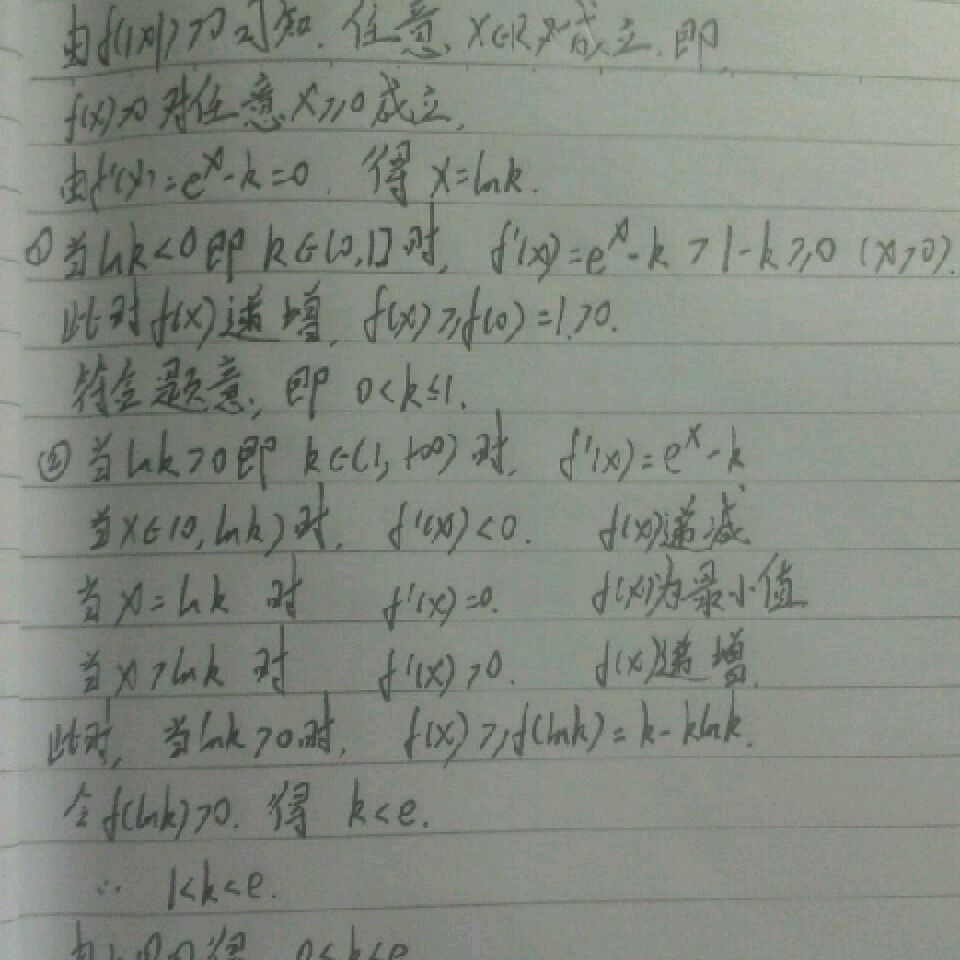 由f(|x|)>0可知.任意x∈R成立.即
f(x)>0对任意x≥0成立.
由f'(x)=eˣ-k=0.得x=lnk.
①当lnk<0即k∈(0,1]时,f'(x)=eˣ-k>1-k≥0(x>0).
此时f(x)递增,f(x)≥f(0)=1>0.
符合题意,即0<k≤1.
②当lnk>0即k∈(1,+∞)时,f'(x)=eˣ-k
当x∈(0,lnk)时,f'(x)<0.f(x)递减
当x=lnk时 f'(x)=0.f(x)为最小值
当x>lnk时 f'(x)>0.f(x)递增.
此时,当lnk>0时,f(x)≥f(lnk)=k-klnk.
令f(lnk)>0.得k<e.
∴ 1<k<e.
0<k<e